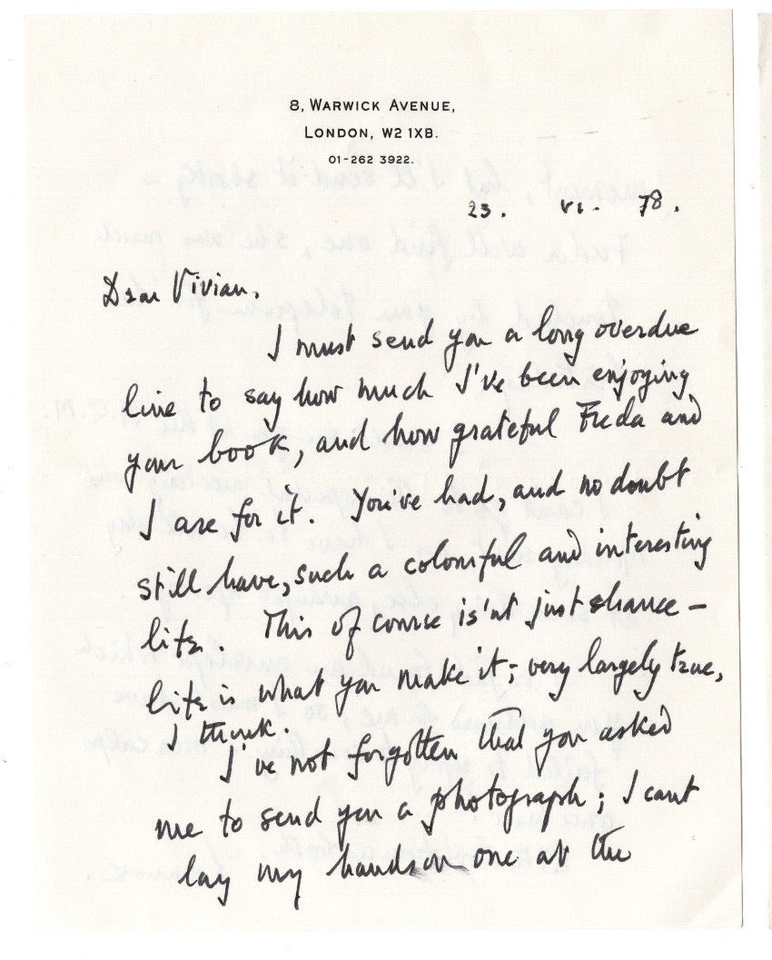 8, WARWICK AVENUE,
LONDON, W2 1XB.
01-262 3922.
23. VI. 78.
Dear Vivian.
I must send you a long overdue
line to say how much I've been enjoying
your book, and how grateful Freda and
I are for it. You've had, and no doubt
still have, such a colourful and interesting
life. This of course is'nt just chance –
life is what you make it; very largely true,
I think.
I've not forgotten that you asked
me to send you a photograph; I cant
lay my hands on one at the